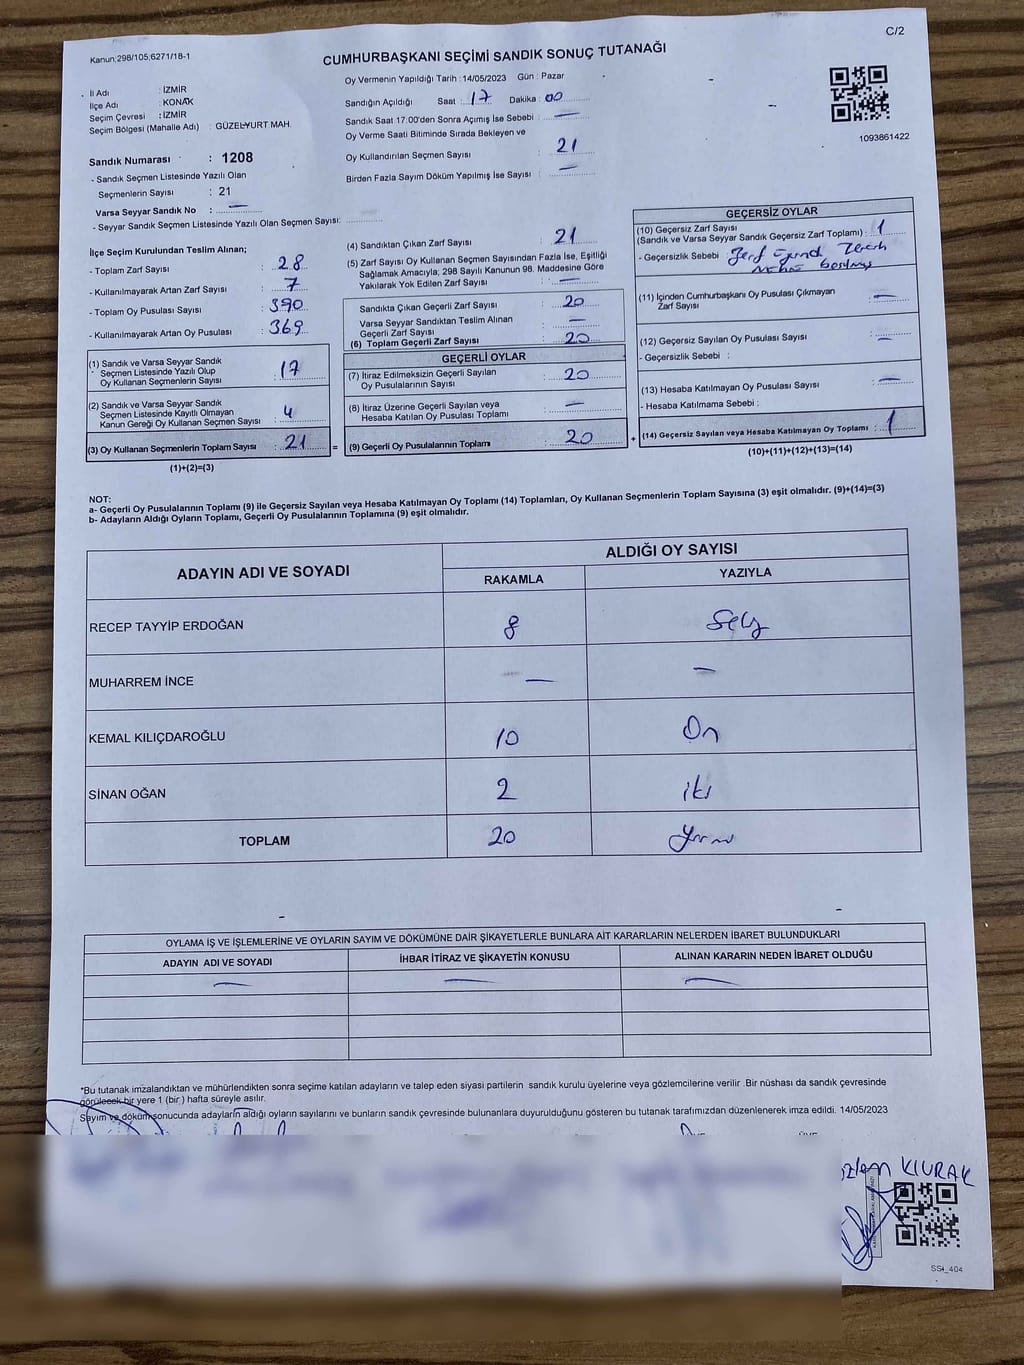 C/2
Kanun:298/105;6271/18-1
CUMHURBAŞKANI SEÇİMİ SANDIK SONUÇ TUTANAĞI
İl Adı : İZMİR
İlçe Adı : KONAK
Seçim Çevresi : İZMİR
Seçim Bölgesi (Mahalle Adı) : GÜZELYURT MAH.
Sandık Numarası : 1208
- Sandık Seçmen Listesinde Yazılı Olan
Seçmenlerin Sayısı : 21
Varsa Seyyar Sandık No : —
- Seyyar Sandık Seçmen Listesinde Yazılı Olan Seçmen Sayısı:
Oy Vermenin Yapıldığı Tarih : 14/05/2023 Gün : Pazar
Sandığın Açıldığı Saat : 17 Dakika : 00
Sandık Saat 17:00'den Sonra Açımış İse Sebebi : —
Oy Verme Saati Bitiminde Sırada Bekleyen ve
Oy Kullandırılan Seçmen Sayısı : 21
Birden Fazla Sayım Döküm Yapılmış İse Sayısı : —
1093861422
İlçe Seçim Kurulundan Teslim Alınan;
- Toplam Zarf Sayısı : 28
- Kullanılmayarak Artan Zarf Sayısı : 7
- Toplam Oy Pusulası Sayısı : 390
- Kullanılmayarak Artan Oy Pusulası : 369
(1) Sandık ve Varsa Seyyar Sandık
Seçmen Listesinde Yazılı Olup
Oy Kullanan Seçmenlerin Sayısı : 17
(2) Sandık ve Varsa Seyyar Sandık
Seçmen Listesinde Kayıtlı Olmayan
Kanun Gereği Oy Kullanan Seçmen Sayısı : 4
(3) Oy Kullanan Seçmenlerin Toplam Sayısı : 21 =
(1)+(2)=(3)
(4) Sandıktan Çıkan Zarf Sayısı : 21
(5) Zarf Sayısı Oy Kullanan Seçmen Sayısından Fazla İse, Eşitliği
Sağlamak Amacıyla, 298 Sayılı Kanunun 98. Maddesine Göre
Yakılarak Yok Edilen Zarf Sayısı : —
Sandıkta Çıkan Geçerli Zarf Sayısı : 20
Varsa Seyyar Sandıktan Teslim Alınan
Geçerli Zarf Sayısı : —
(6) Toplam Geçerli Zarf Sayısı : 20
GEÇERLİ OYLAR
(7) İtiraz Edilmeksizin Geçerli Sayılan
Oy Pusulalarının Sayısı : 20
(8) İtiraz Üzerine Geçerli Sayılan veya
Hesaba Katılan Oy Pusulası Toplamı : —
(9) Geçerli Oy Pusulalarının Toplamı : 20 +
GEÇERSİZ OYLAR
(10) Geçersiz Zarf Sayısı
(Sandık ve Varsa Seyyar Sandık Geçersiz Zarf Toplamı) : 1
- Geçersizlik Sebebi :
(11) İçinden Cumhurbaşkanı Oy Pusulası Çıkmayan
Zarf Sayısı : —
(12) Geçersiz Sayılan Oy Pusulası Sayısı : —
- Geçersizlik Sebebi :
(13) Hesaba Katılmayan Oy Pusulası Sayısı : —
- Hesaba Katılmama Sebebi :
(14) Geçersiz Sayılan veya Hesaba Katılmayan Oy Toplamı : 1
(10)+(11)+(12)+(13)=(14)
NOT:
a- Geçerli Oy Pusulalarının Toplamı (9) ile Geçersiz Sayılan veya Hesaba Katılmayan Oy Toplamı (14) Toplamları, Oy Kullanan Seçmenlerin Toplam Sayısına (3) eşit olmalıdır. (9)+(14)=(3)
b- Adayların Aldığı Oyların Toplamı, Geçerli Oy Pusulalarının Toplamına (9) eşit olmalıdır.
ADAYIN ADI VE SOYADI ALDIĞI OY SAYISI
RAKAMLA YAZIYLA
RECEP TAYYİP ERDOĞAN 8 Sekiz
MUHARREM İNCE — —
KEMAL KILIÇDAROĞLU 10 On
SİNAN OĞAN 2 iki
TOPLAM 20 Yirmi
OYLAMA İŞ VE İŞLEMLERİNE VE OYLARIN SAYIM VE DÖKÜMÜNE DAİR ŞİKAYETLERLE BUNLARA AİT KARARLARIN NELERDEN İBARET BULUNDUKLARI
ADAYIN ADI VE SOYADI İHBAR İTİRAZ VE ŞİKAYETİN KONUSU ALINAN KARARIN NEDEN İBARET OLDUĞU
— — —
*Bu tutanak imzalandıktan ve mühürlendikten sonra seçime katılan adayların ve talep eden siyasi partilerin sandık kurulu üyelerine veya gözlemcilerine verilir .Bir nüshası da sandık çevresinde
görülecek bir yere 1 (bir ) hafta süreyle asılır.
Sayım ve döküm sonucunda adayların aldığı oyların sayılarını ve bunların sandık çevresinde bulunanlara duyurulduğunu gösteren bu tutanak tarafımızdan düzenlenerek imza edildi. 14/05/2023
KIVRAK
SS4_404